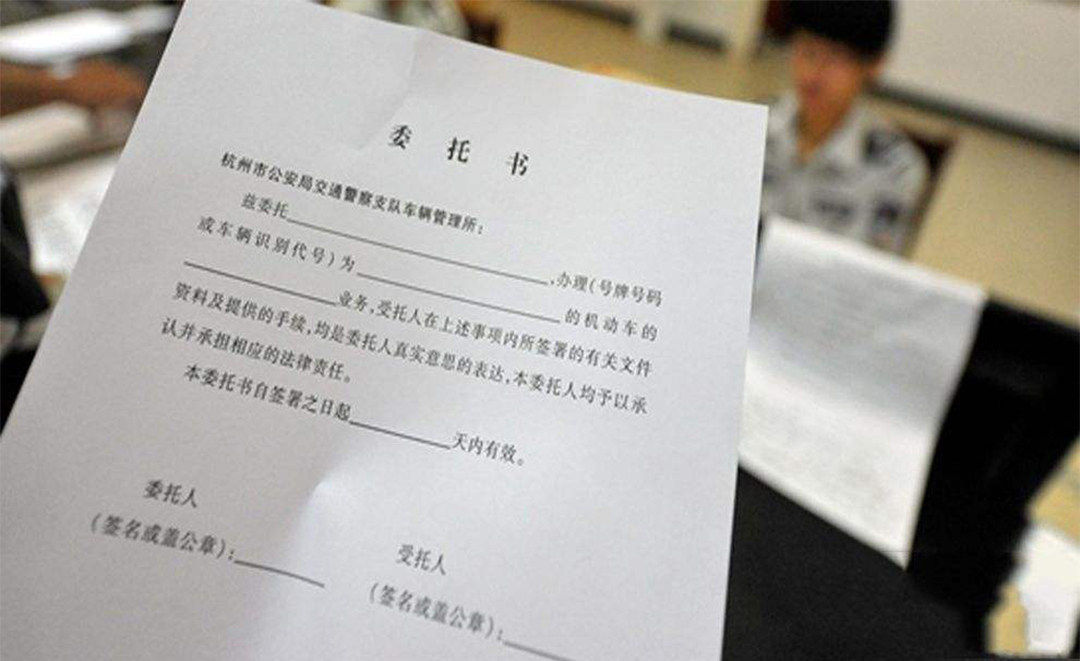 委托书
杭州市公安局交通警察支队车辆管理所：
兹委托____________________，办理（号牌号码
或车辆识别代号）为________________的机动车的
____________业务，受托人在上述事项内所签署的有关文件
资料及提供的手续，均是委托人真实意思的表达，本委托人均予以承
认并承担相应的法律责任。
本委托书自签署之日起________天内有效。
委托人
（签名或盖公章）：________
受托人
（签名或盖公章）：________